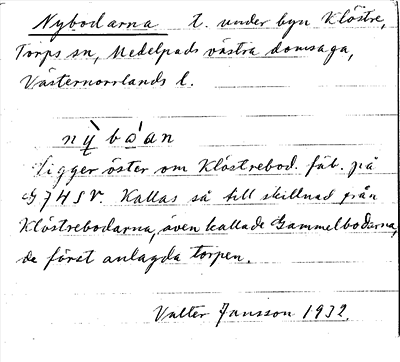 Nybodarna t. under byn Klöstre,
Torps sn, Medelpads västra domsaga,
Västernorrlands l.
nỳ̖ bo̖'an
Ligger öster om Klöstrebod. fäb. på
G 74 SV. Kallas så till skillnad från
Klöstrebodarna, även kallade Gammelbodarna,
de först anlagda torpen.
Valter Jansson 1932.